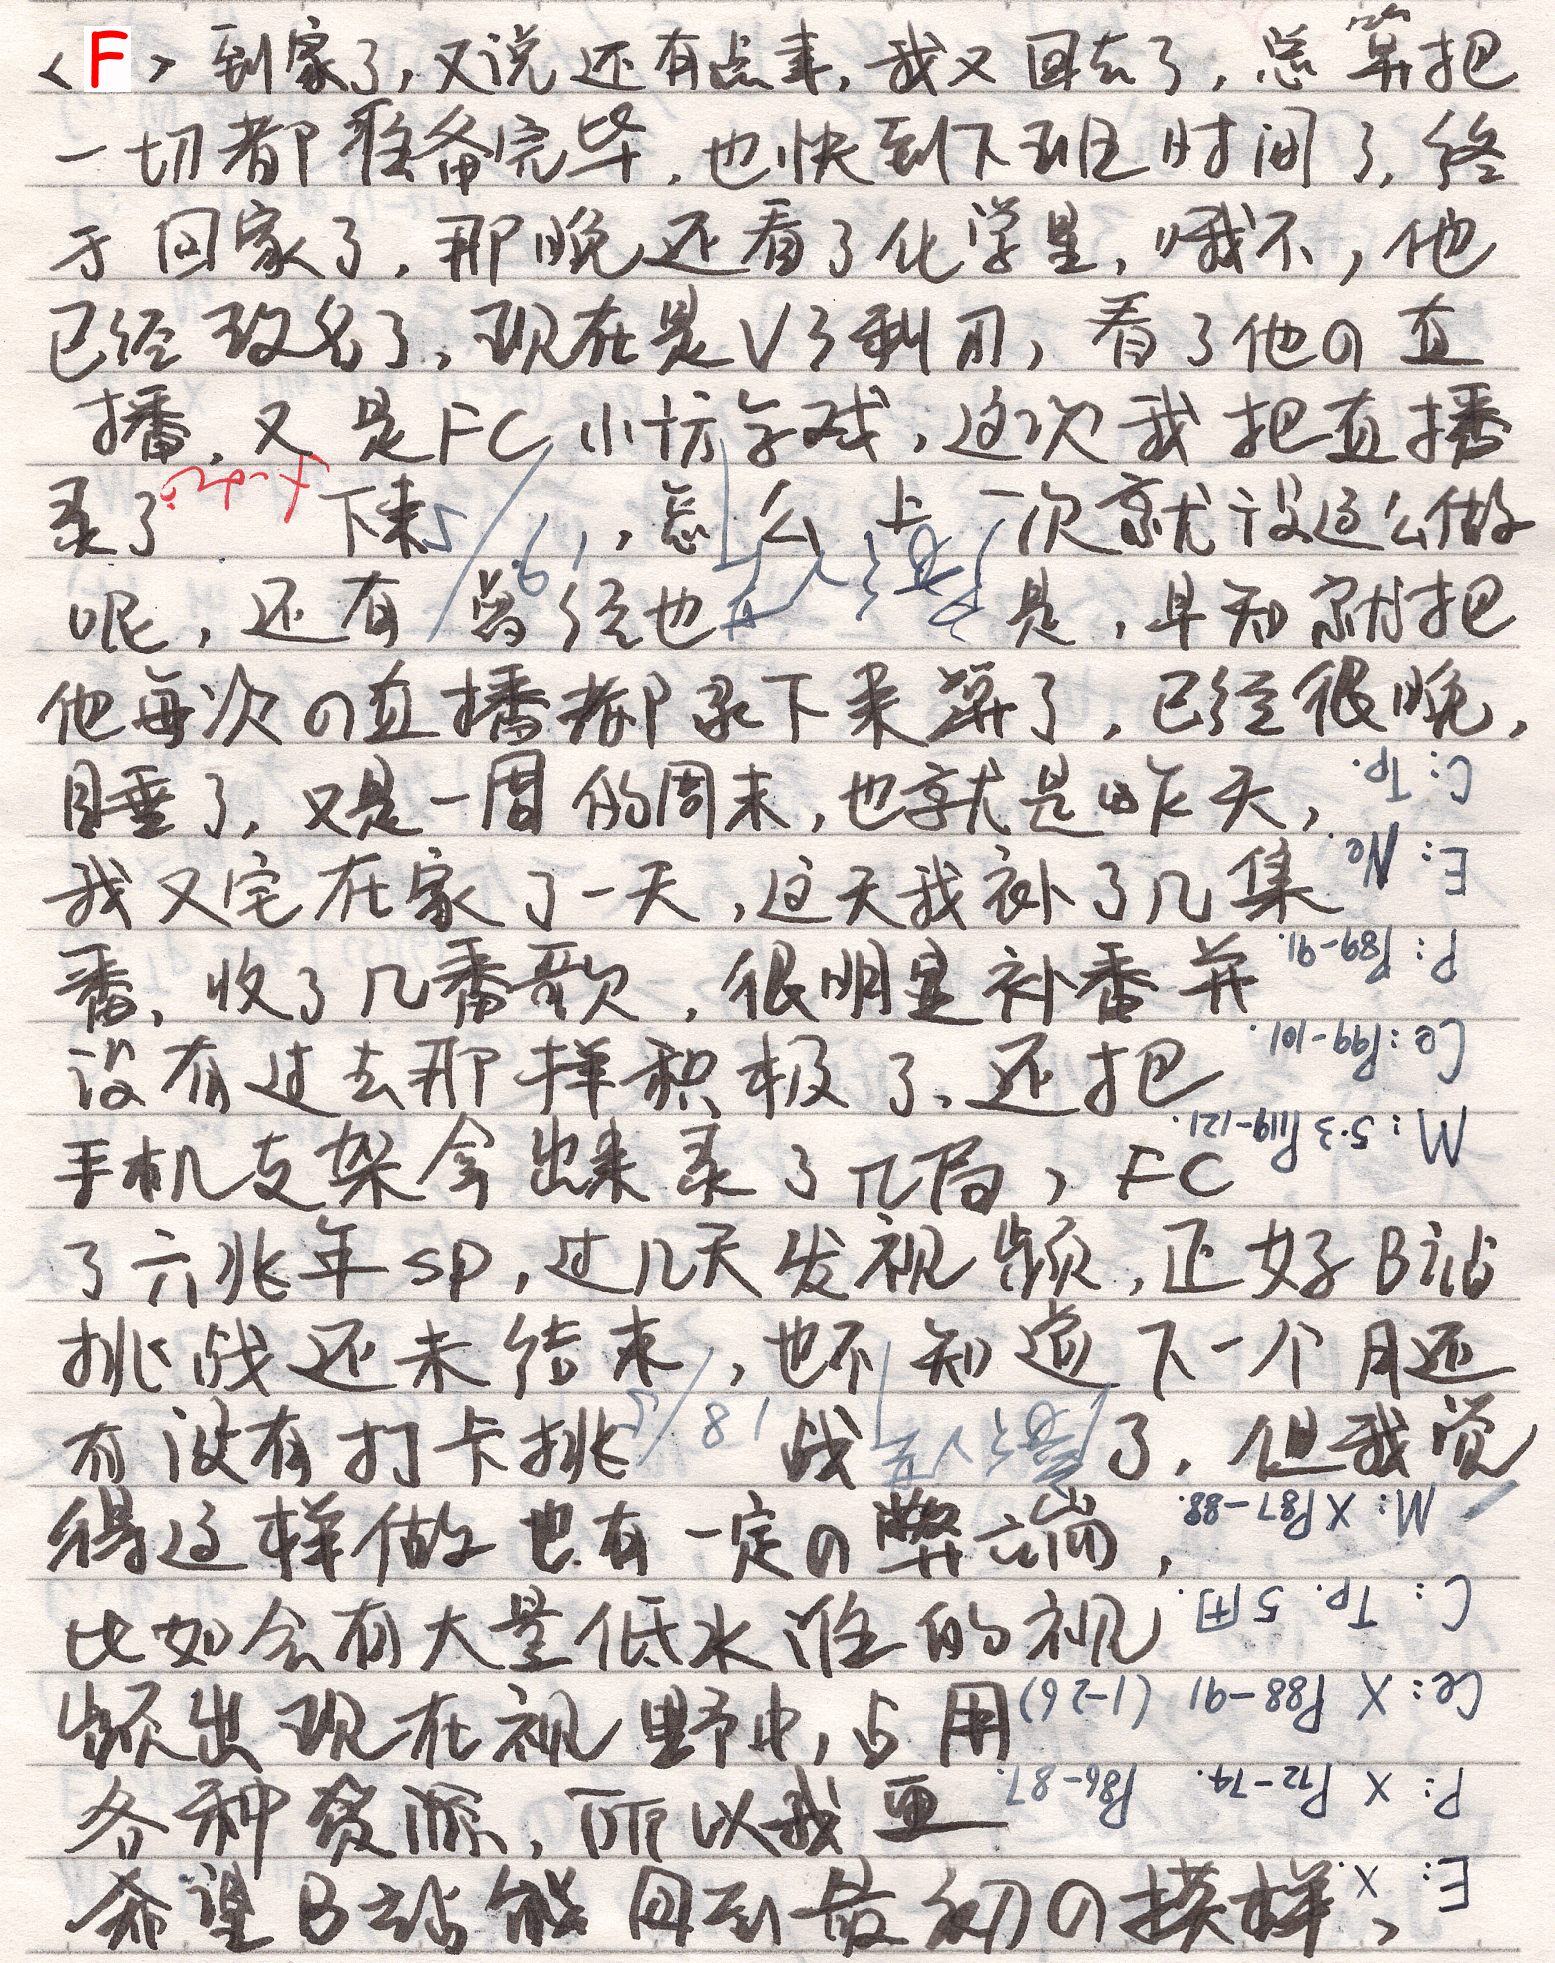 <F> 到家了,又说还有点事,我又回去了,总算把
一切都准备完毕,也快到下班时间了,终
于回家了,那晚还看了化学星,哦不,他
已经改名了,现在是V3利刃,看了他の直
播,又是FC小坊字戏,这次我把直播
录了下来,怎么上一次就没这么做
呢,还有曾经也是,早知就把
他每次の直播都录下来算了,已经很晚,
睡了,又是一周的周末,也就是昨天,
我又宅在家了一天,这天我补了几集
番,收了几番歌,很明显补番并
没有过去那样积极了,还把
手机支架拿出来录了几局,FC
了六兆年SP,过几天发视频,正好B站
挑战还未结束,也不知道下一个月还
有没有打卡挑战了,但我觉
得这样做也有一定の弊端,
比如会有大量低水准的视
频出现在视野中,占用
各种资源,所以我更
希望B站能回到最初の模样,
E: X.
P: X P72-74. P86-87.
Ce: X P88-91 (1-26)
C: Tp. 5月.
M: X P87-88.
18/5
M: 5.3 P119-121.
Ce: P99-101.
P: P89-91.
E: No.
C: Tp.
19/5